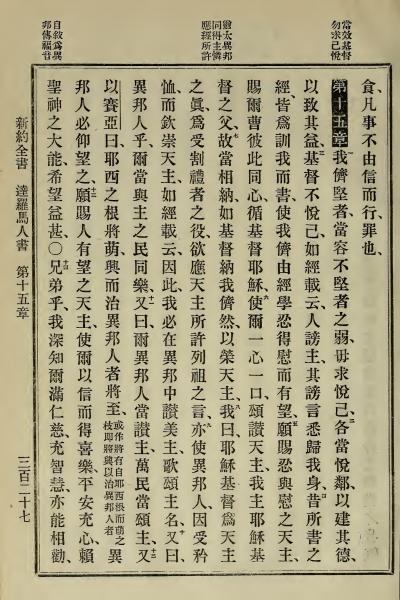 當效基督
勿求己悅
猶太異邦
同得主憐
應經所許
自敘爲異
邦傳福音
食、凡事不由信而行、罪也、
第十五章 我儕堅者、當容不堅者之弱、毋求悅己、二各當悅鄰以建其德、
以致其益、三基督不悅己、如經載云、人謗主、其謗言悉歸我身、四昔所書之
經、皆爲訓我而書、使我儕由經學忍得慰而有望、五願賜忍與慰之天主、
賜爾曹彼此同心、循基督耶穌、六使爾一心一口、頌讚天主、我主耶穌基
督之父、七故當相納、如基督納我儕然、以榮天主、八我曰、耶穌基督爲天主
之眞、爲受割禮者之役、欲應天主所許列祖之言、九亦使異邦人、因受矜
恤、而欽崇天主、如經載云、因此我必在異邦中讚美主、歌頌主名、十又曰、
異邦人乎、爾當與主之民同樂、十一又曰、爾異邦人當讚主、萬民當頌主、十二又
以賽亞曰、耶西之根將萌、興而治異邦人者將至、或作將有自耶西根而萌之枝即將興以治異邦人者異
邦人必仰望之、十三願賜人有望之天主、使爾以信而得喜樂平安充心、賴
聖神之大能、希望益甚、〇十四兄弟乎、我深知爾滿仁慈、充智慧、亦能相勸、
新約全書 達羅馬人書 第十五章 三百二十七